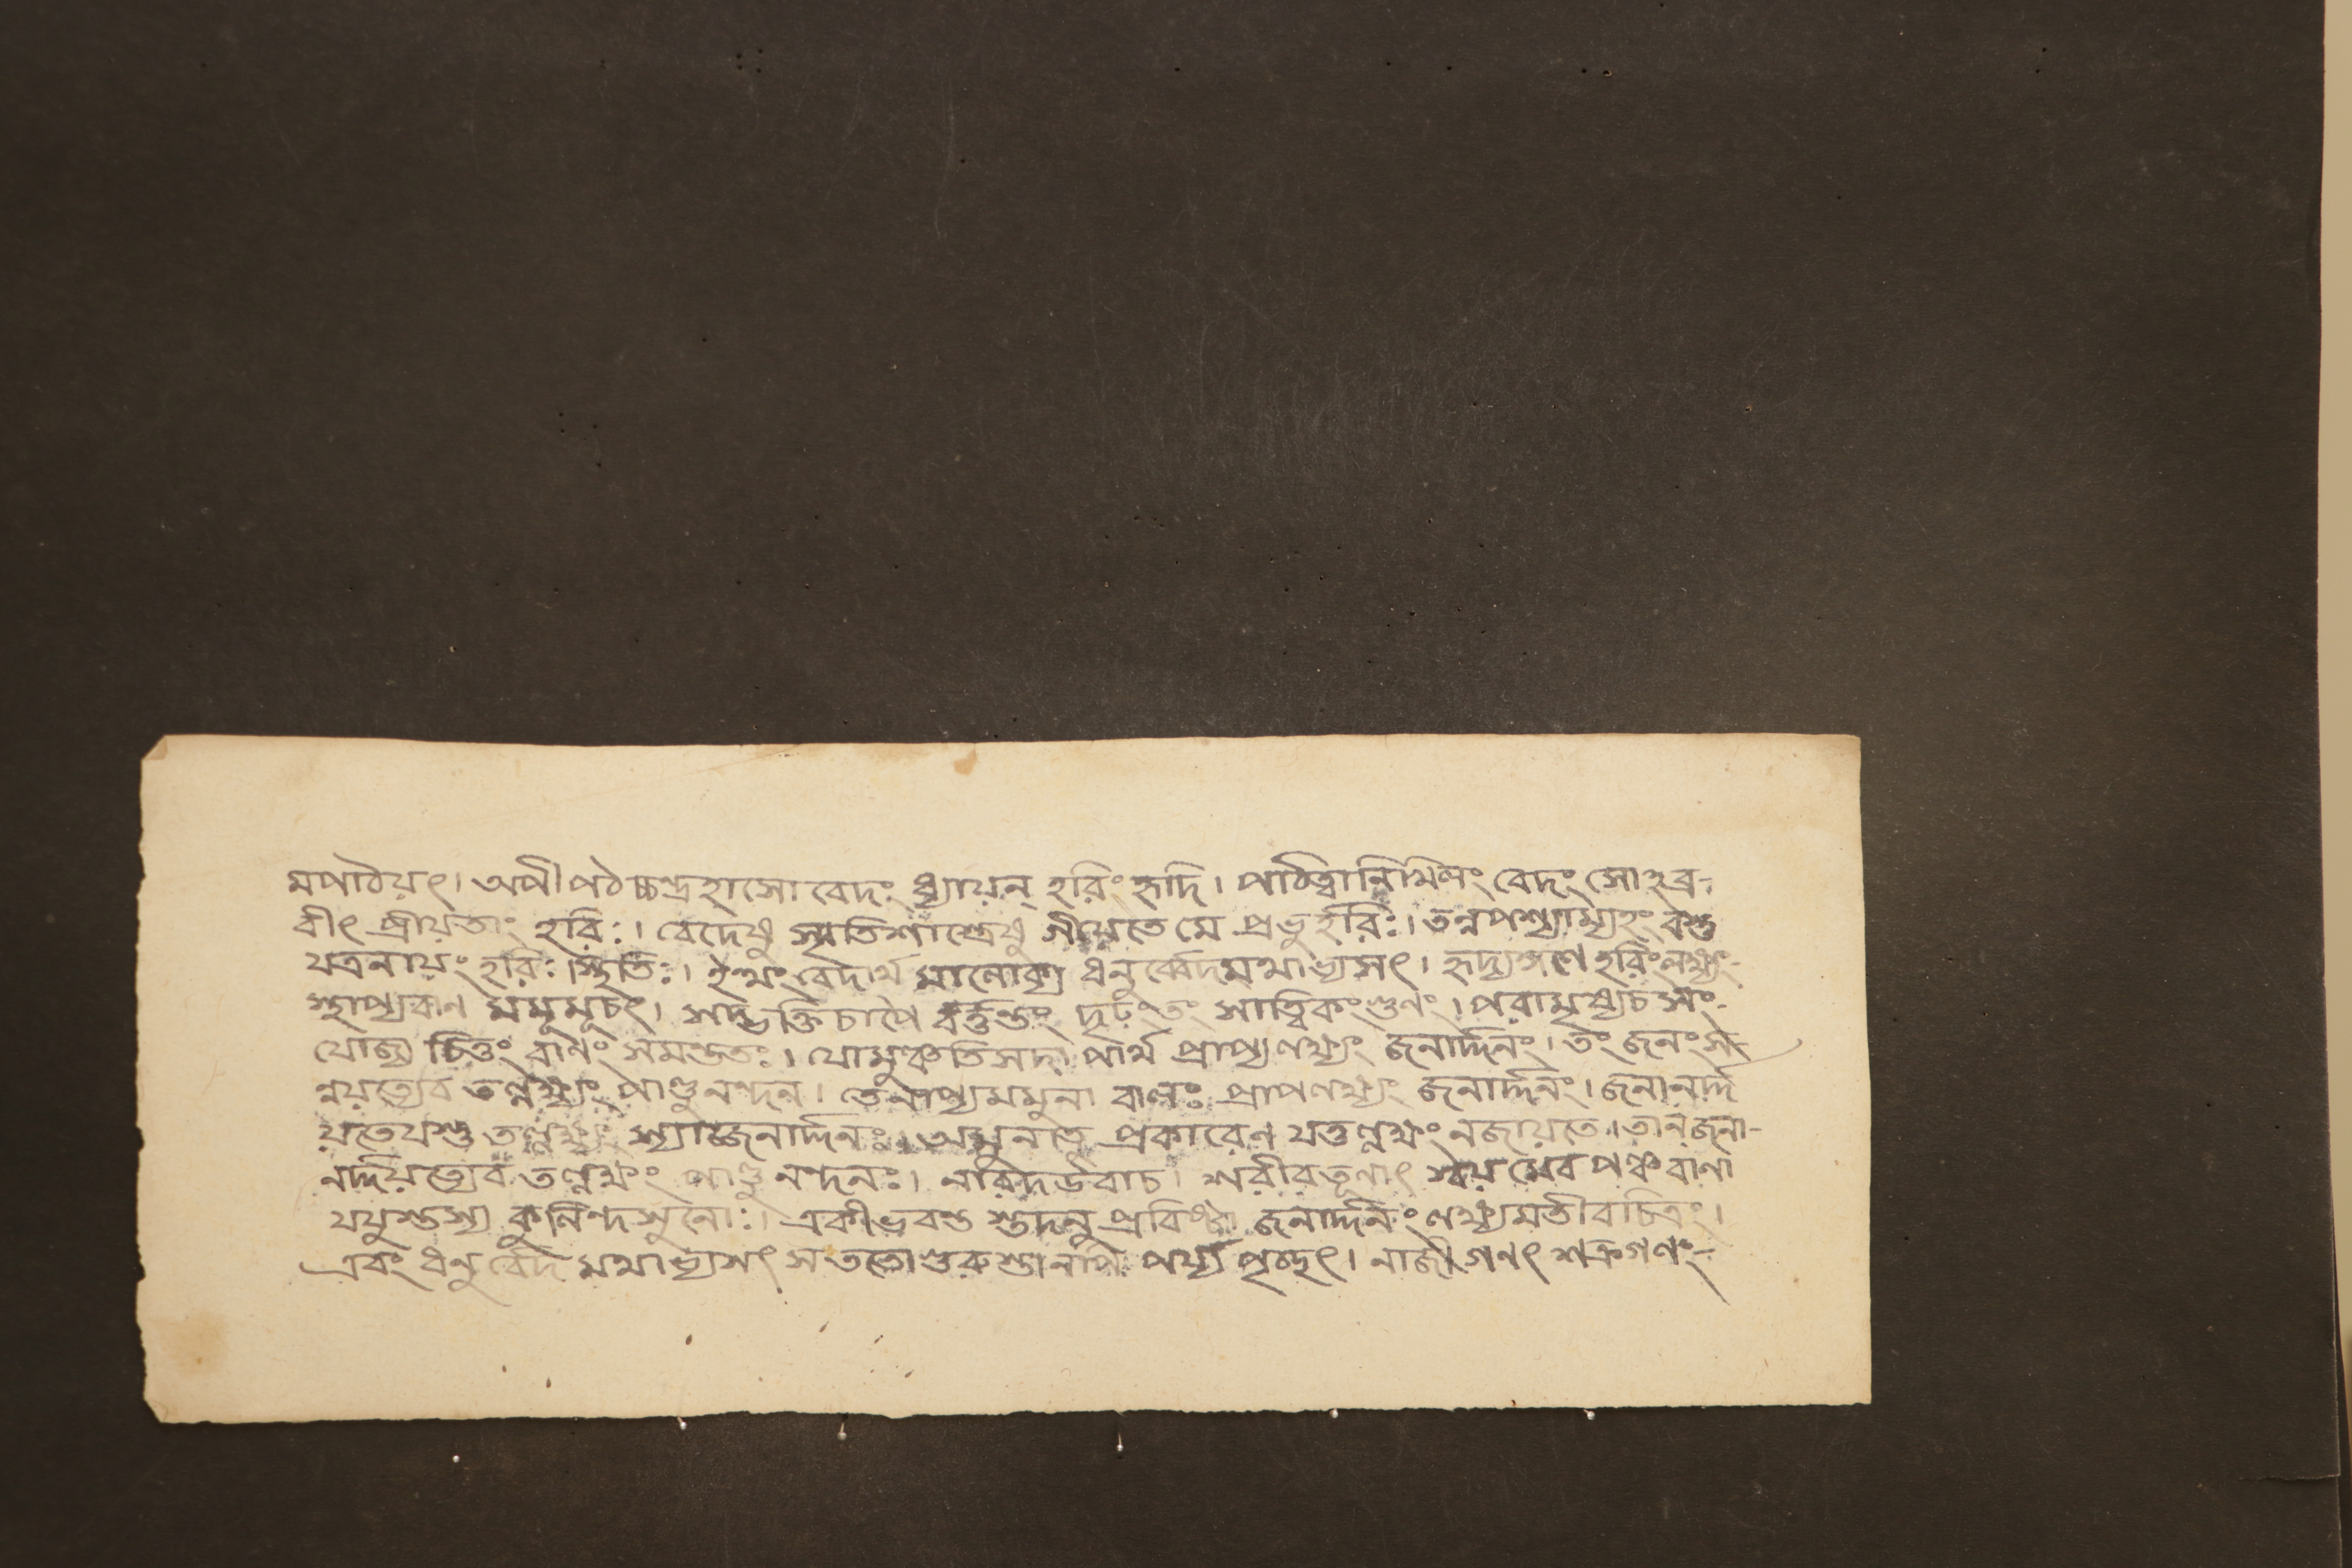 মপাঠয়ৎ। অপীপঠচ্চন্দ্রহাসো বেদং ধ্যায়ন্ হরিং হৃদি। পাঠিত্বানিখিলং বেদং সোঽব্র-
বীৎ প্রীয়তাং হরিঃ। বেদেষু স্মৃতিশাস্ত্রেষু গীয়েতে মে প্রভুর্হরিঃ। তন্নপশ্যাম্যহং বস্তু
যত্রনায়ং হরিঃ স্থিতিঃ। ইত্থং বেদার্থ মালোক্য ধনুর্ব্বেদমথাভ্যসৎ। হৃদ্যঙ্গণে হরিংলক্ষ্যং-
স্থাপ্যবাণ মমূমূচৎ। সদ্ভক্তিচাপৈ দৃঢ়ংতং সাত্ত্বিকংগুণং। পরামৃষ্যচ সং-
যোজ্য চিত্তং বাণং সমন্ততঃ। যোমুঞ্চতিসদা পার্থ প্রাপ্যলক্ষ্যং জনার্দ্দনং। তং জনংস
ন্নয়ত্যেব তল্লক্ষ্যং পাণ্ডুনন্দন। তেনাপ্যমমুনা বাণঃ প্রাপলক্ষ্যং জনার্দ্দনং। জনানর্দ্দ
য়তেযস্তু তল্লক্ষ্যং স্যাজ্জনার্দ্দনঃ। অমুনাতু প্রকারেণ যত্তল্লক্ষং নজায়তে। তানজনা-
নর্দ্দয়িত্যেব তল্লক্ষং পাণ্ডুনন্দনঃ। নারদউবাচ। শরীরতূণাৎ স্বয়মেব পঞ্চবাণা
যযুস্তস্য কুলিন্দসুনোঃ। একীভবন্ত স্তদনু প্রবিষ্টা জনার্দ্দনং লক্ষ্যমতীবচিত্রং।
এবং ধনুর্বেদ মথাভ্যসৎ স ততোগুরুস্তানপি পর্য্যপৃচ্ছৎ। নাজীগণৎ শত্রুগণং-